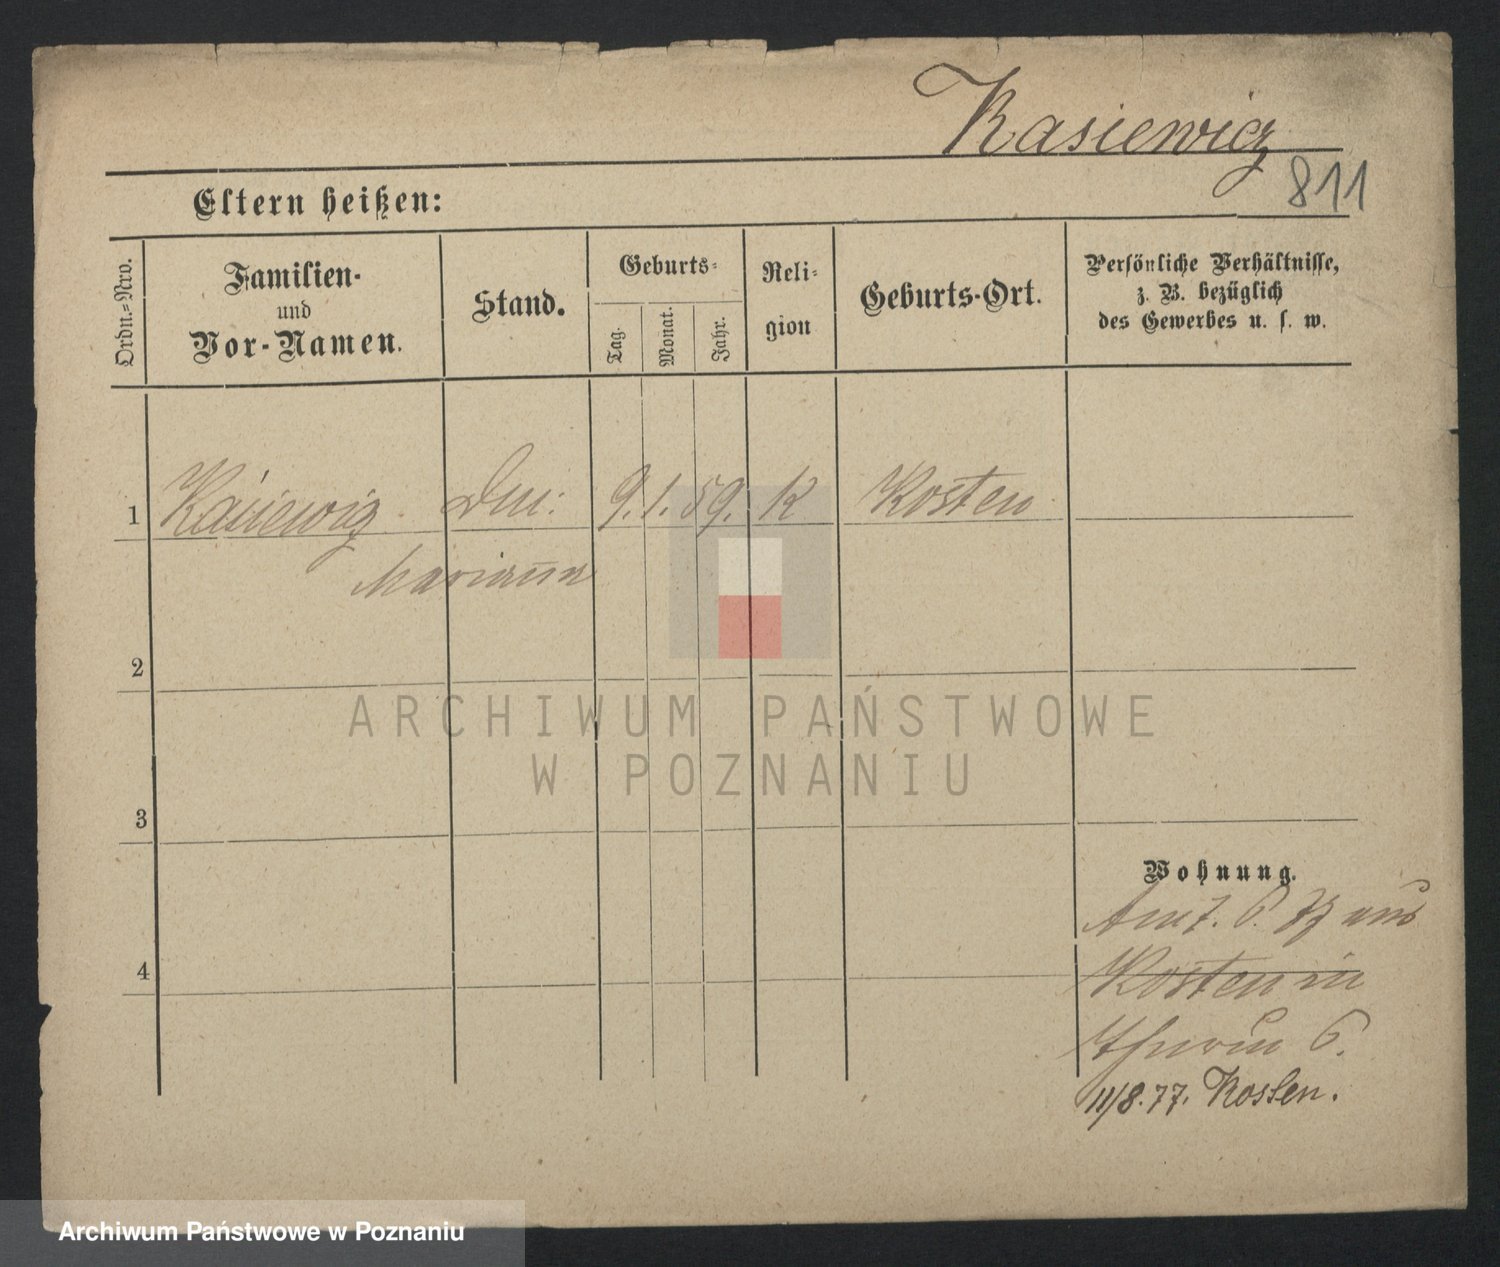 Kasiewicz
811
Eltern heißen:
Ordn.-Nro.
Familien-
und
Vor-Namen.
Stand.
Geburts-
Tag.
Monat.
Jahr.
Reli-
gion
Geburts-Ort.
Persönliche Verhältnisse,
z. B. bezüglich
des Gewerbes u. s. w.
1 Kasiewicz 9. 1. 59. K Kosten
Marianna
2
ARCHIWUM PAŃSTWOWE
W POZNANIU
3
Wohnung.
6. aus
4 Kosten in
6.
11/8.77. Kosten.
Archiwum Państwowe w Poznaniu